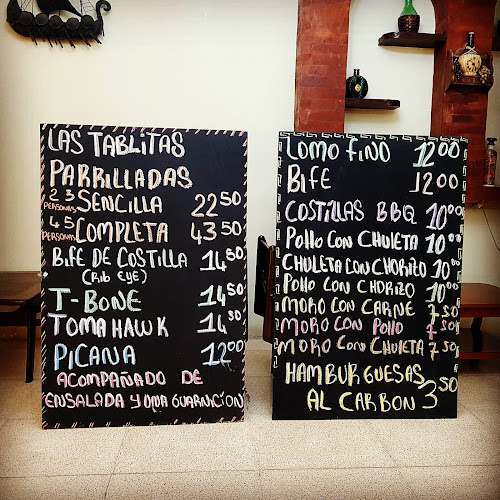 LAS TABLITAS
PARRILLADAS
2 3 PERSONAS SENCILLA 22 50
4 5 PERSONAS COMPLETA 43 50
BIFE DE COSTILLA 14 50
(RIB EYE)
T-BONE 14 50
TOMA HAWK 14 50
PICANA 12 00
ACOMPAÑADO DE
ENSALADA Y UNA GUARNICION
LOMO FINO 12 00
BIFE 12 00
COSTILLAS BBQ 10 00
POLLO CON CHULETA 10 00
CHULETA CON CHORIZO 10 00
POLLO CON CHORIZO 10 00
MORO CON CARNE 7 50
MORO CON POLLO 7 50
MORO CON CHULETA 7 50
HAMBURGUESAS
AL CARBON 3 50